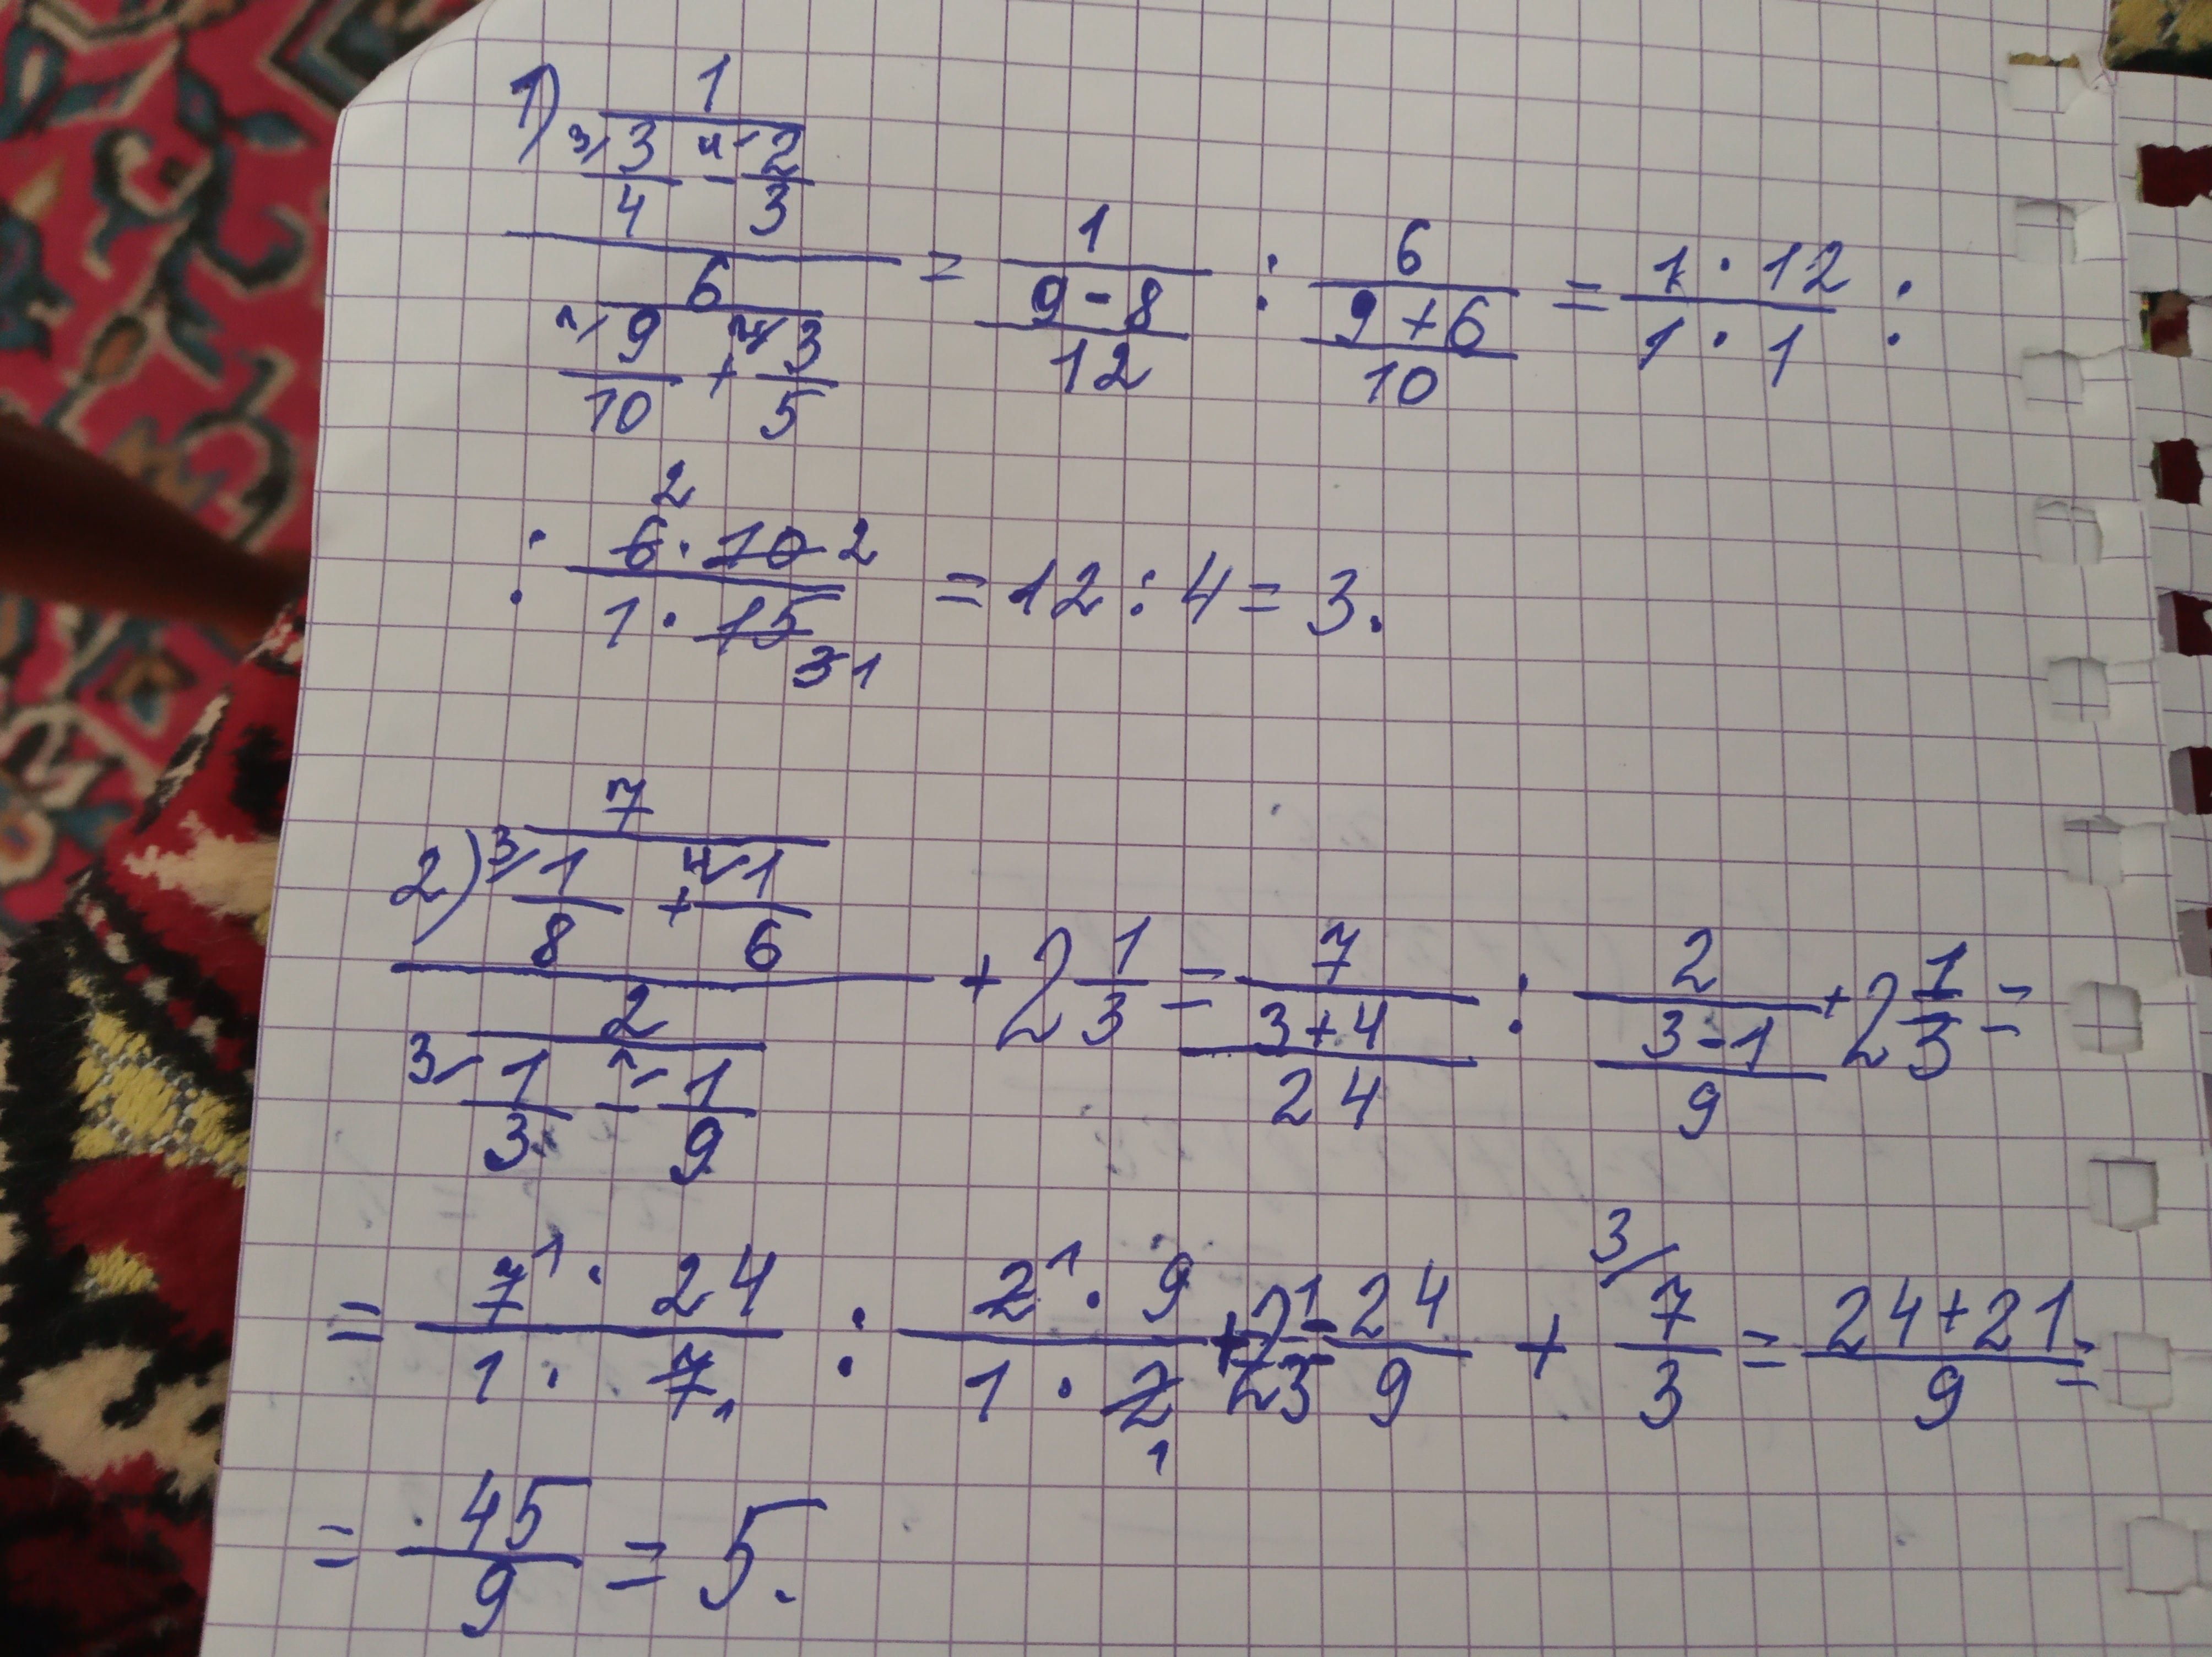 1) 1
3/ 3/4 - 4/ 2/3
6
9/10 + 2/ 3/5
= 1 / ((9-8)/12) : 6 / ((9+6)/10) = (1·12)/(1·1) :
: (6·10)/(1·15) 2 2 3 1 = 12 : 4 = 3.
2) 7
3/ 1/8 + 4/ 1/6
2
3/ 1/3 - 1/ 1/9
+ 2 1/3 = 7 / ((3+4)/24) : 2 / ((3-1)/9) + 2 1/3 =
= (7 1 · 24)/(1 · 7 1) : (2 1 · 9)/(1 · 2 1) + 2 1/3 = 24/9 + 3/ 7/3 = (24+21)/9 =
= 45/9 = 5.